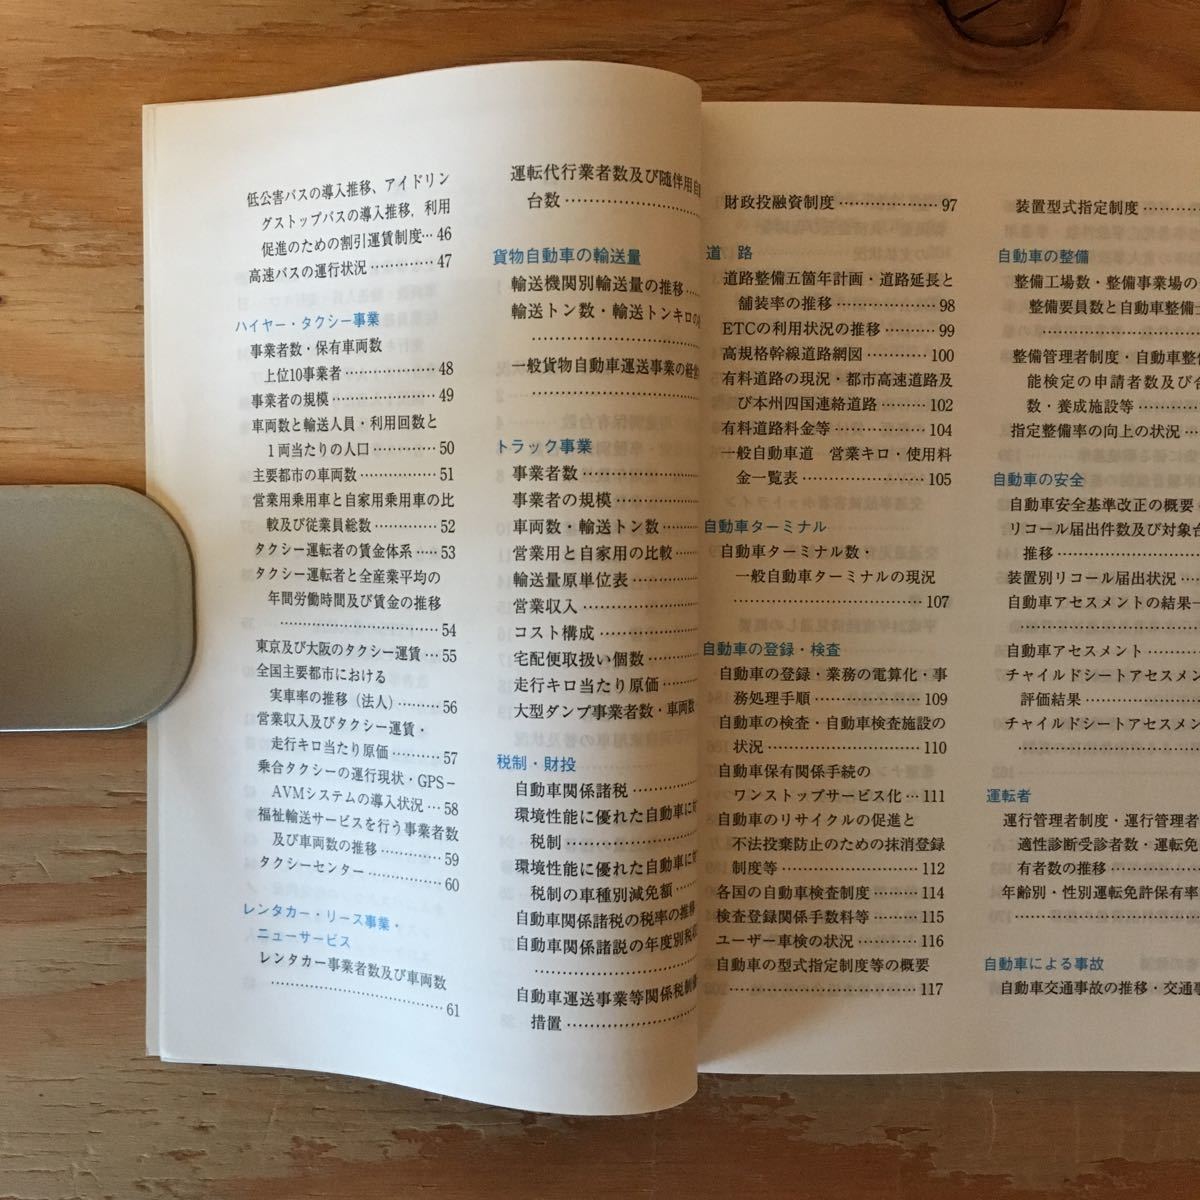 低公害バスの導入推移、アイドリン
グストップバスの導入推移, 利用
促進のための割引運賃制度… 46
高速バスの運行状況………… 47
ハイヤー・タクシー事業
事業者数・保有車両数
上位10事業者……………… 48
事業者の規模……………… 49
車両数と輸送人員・利用回数と
1両当たりの人口………… 50
主要都市の車両数………… 51
営業用乗用車と自家用乗用車の比
較及び従業員総数………… 52
タクシー運転者の賃金体系…… 53
タクシー運転者と全産業平均の
年間労働時間及び賃金の推移
…………………………… 54
東京及び大阪のタクシー運賃… 55
全国主要都市における
実車率の推移（法人）……… 56
営業収入及びタクシー運賃・
走行キロ当たり原価……… 57
乗合タクシーの運行現状・GPS－
AVMシステムの導入状況… 58
福祉輸送サービスを行う事業者数
及び車両数の推移………… 59
タクシーセンター………… 60
レンタカー・リース事業・
ニューサービス
レンタカー事業者数及び車両数
…………………………… 61
運転代行業者数及び随伴用自
台数……………………
貨物自動車の輸送量
輸送機関別輸送量の推移……
輸送トン数・輸送トンキロの
……………………………
一般貨物自動車運送事業の経営
……………………………
トラック事業
事業者数…………………
事業者の規模……………
車両数・輸送トン数………
営業用と自家用の比較……
輸送量原単位表…………
営業収入…………………
コスト構成………………
宅配便取扱い個数………
走行キロ当たり原価……
大型ダンプ事業者数・車両数
税制・財投
自動車関係諸税…………
環境性能に優れた自動車に対
税制………………………
環境性能に優れた自動車に対
税制の車種別減免額……
自動車関係諸税の税率の推移
自動車関係諸説の年度別税収
……………………………
自動車運送事業等関係税制
措置………………………
財政投融資制度……………… 97
道　路
道路整備五箇年計画・道路延長と
舗装率の推移……………… 98
ETCの利用状況の推移……… 99
高規格幹線道路網図………… 100
有料道路の現況・都市高速道路及
び本州四国連絡道路……… 102
有料道路料金等……………… 104
一般自動車道　営業キロ・使用料
金一覧表…………………… 105
自動車ターミナル
自動車ターミナル数・
一般自動車ターミナルの現況
…………………………… 107
自動車の登録・検査
自動車の登録・業務の電算化・事
務処理手順………………… 109
自動車の検査・自動車検査施設の
状況………………………… 110
自動車保有関係手続の
ワンストップサービス化… 111
自動車のリサイクルの促進と
不法投棄防止のための抹消登録
制度等……………………… 112
各国の自動車検査制度……… 114
検査登録関係手数料等……… 115
ユーザー車検の状況………… 116
自動車の型式指定制度等の概要
…………………………… 117
装置型式指定制度………
自動車の整備
整備工場数・整備事業場の
整備要員数と自動車整備士
……………………………
整備管理者制度・自動車整
能検定の申請者数及び合
数・養成施設等…………
指定整備率の向上の状況…
自動車の安全
自動車安全基準改正の概要
リコール届出件数及び対象台
推移………………………
装置別リコール届出状況…
自動車アセスメントの結果－
……………………………
自動車アセスメント………
チャイルドシートアセスメン
評価結果…………………
チャイルドシートアセスメン
……………………………
運転者
運行管理者制度・運行管理者
適性診断受診者数・運転免
有者数の推移……………
年齢別・性別運転免許保有率
……………………………
自動車による事故
自動車交通事故の推移・交通事